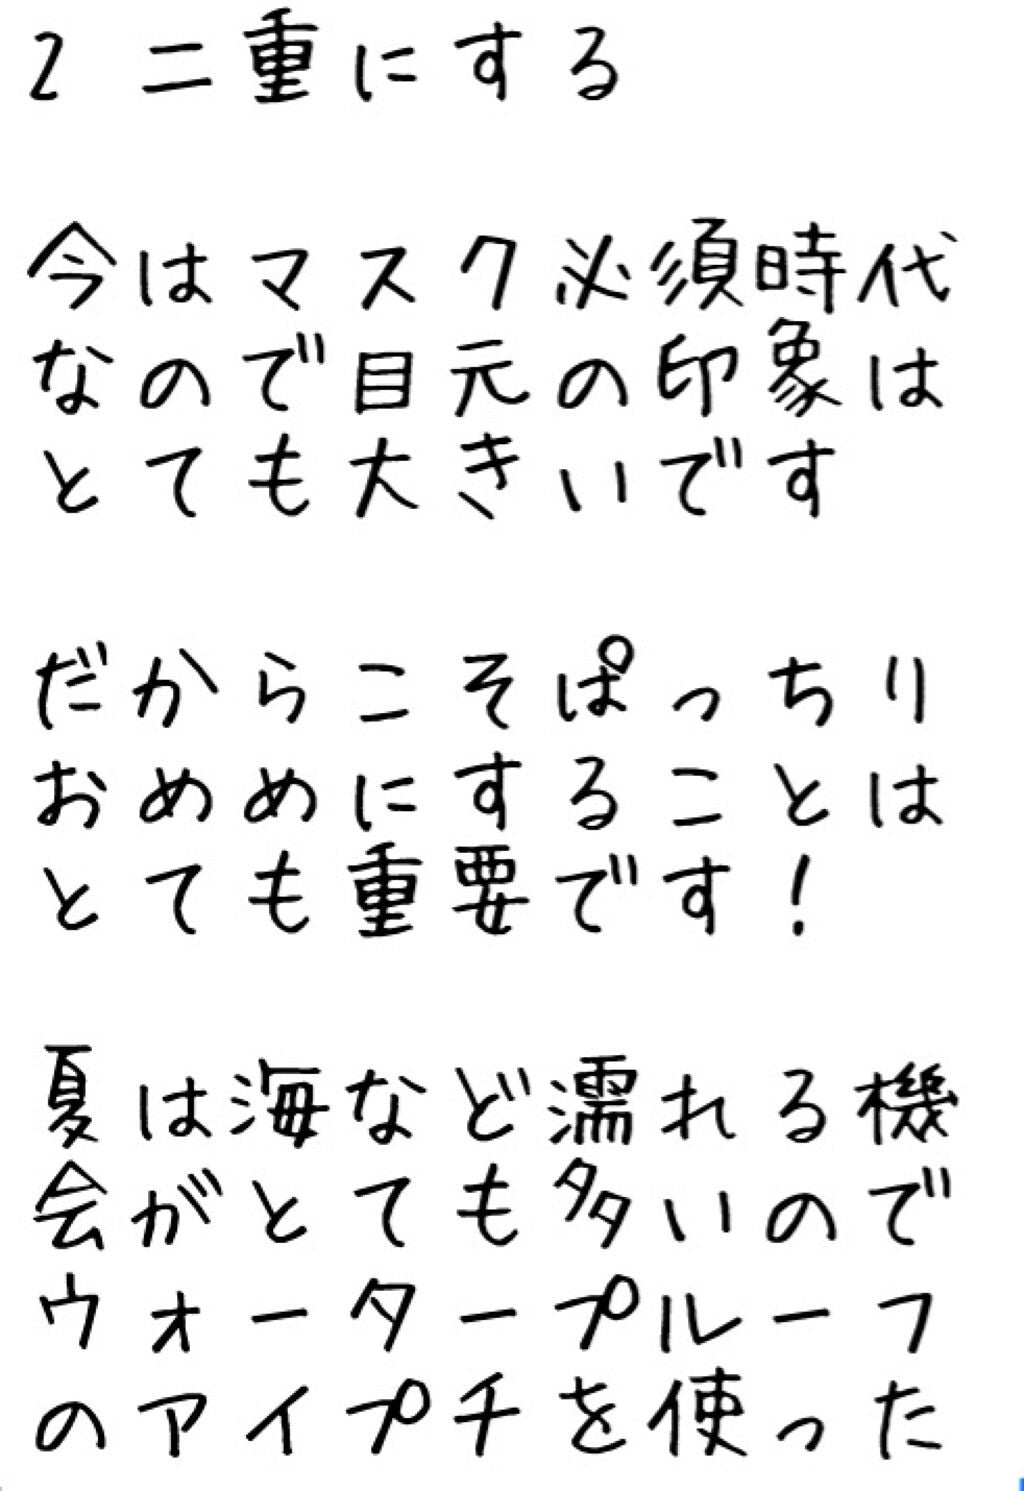 2 二重にする
今はマスク必須時代
なので目元の印象は
とても大きいです
だからこそぱっちり
おめめにすることは
とても重要です!
夏は海など濡れる機
会がとても多いので
ウォータープルーフ
のアイプチを使った